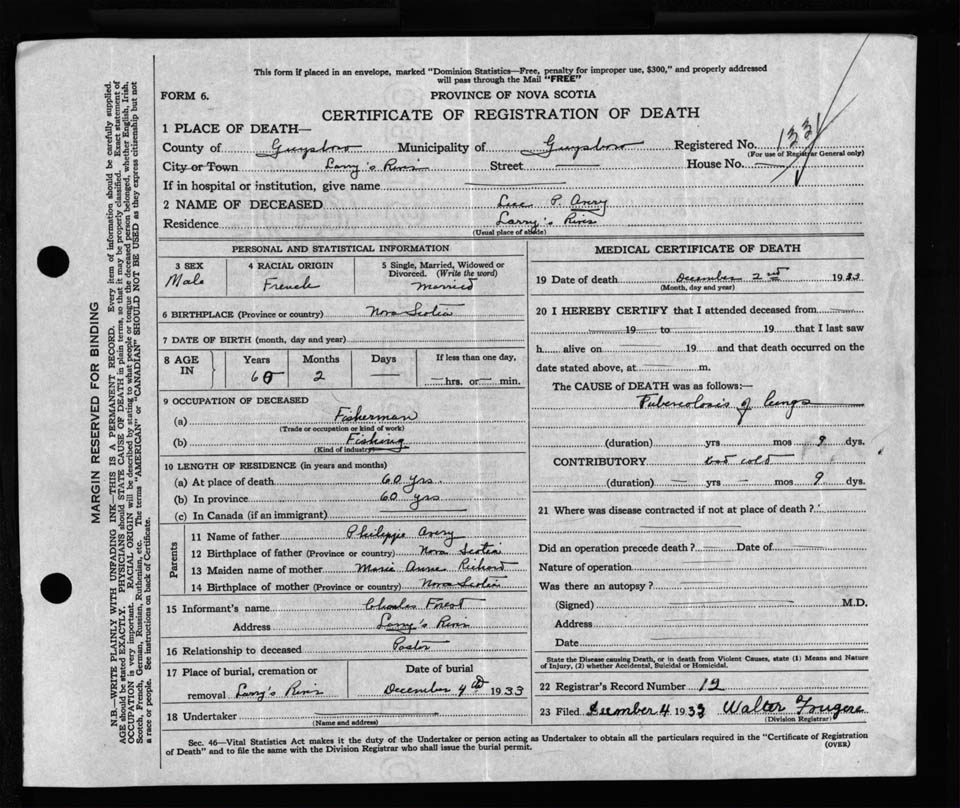 This form if placed in an envelope, marked "Dominion Statistics—Free, penalty for improper use, $300," and properly addressed
will pass through the Mail "FREE"
FORM 6.
PROVINCE OF NOVA SCOTIA
CERTIFICATE OF REGISTRATION OF DEATH
1 PLACE OF DEATH—
County of Guysboro Municipality of Guysboro Registered No.
(For use of Registrar General only)
City or Town Larry's River Street House No.
If in hospital or institution, give name
2 NAME OF DECEASED Luc P. Avery
Residence Larry's River
(Usual place of abode)
PERSONAL AND STATISTICAL INFORMATION
3 SEX
Male
4 RACIAL ORIGIN
French
5 Single, Married, Widowed or
Divorced. (Write the word)
Married
6 BIRTHPLACE (Province or country) Nova Scotia
7 DATE OF BIRTH (month, day and year)
8 AGE
IN
Years
60
Months
2
Days
—
If less than one day,
—hrs. or— min.
9 OCCUPATION OF DECEASED
(a) Fisherman
(Trade or occupation or kind of work)
(b) Fishing
(Kind of industry)
10 LENGTH OF RESIDENCE (in years and months)
(a) At place of death 60 yrs.
(b) In province 60 yrs
(c) In Canada (if an immigrant)
Parents
11 Name of father Philippe Avery
12 Birthplace of father (Province or country) Nova Scotia
13 Maiden name of mother Marie Anne Richard
14 Birthplace of mother (Province or country) Nova Scotia
15 Informant's name Charles Forest
Address Larry's River
16 Relationship to deceased Pastor
17 Place of burial, cremation or
removal Larry's River
Date of burial
December 4th 1933
18 Undertaker
(Name and address)
MEDICAL CERTIFICATE OF DEATH
19 Date of death December 2nd 1933
(Month, day and year)
20 I HEREBY CERTIFY that I attended deceased from
19 to 19 that I last saw
h alive on 19 and that death occurred on the
date stated above, at m.
The CAUSE of DEATH was as follows:—
Tuberculosis of lungs
(duration) yrs mos 9 dys.
CONTRIBUTORY bad cold
(duration) — yrs — mos 9 dys.
21 Where was disease contracted if not at place of death?
Did an operation precede death? Date of
Nature of operation
Was there an autopsy?
(Signed) M.D.
Address
Date
State the Disease causing Death, or in death from Violent Causes, state (1) Means and Nature
of Injury, (2) whether Accidental, Suicidal or Homicidal.
22 Registrar's Record Number 12
23 Filed December 4 1933 Walter Fougere
(Division Registrar)
Sec. 46—Vital Statistics Act makes it the duty of the Undertaker or person acting as Undertaker to obtain all the particulars required in the "Certificate of Registration
of Death" and to file the same with the Division Registrar who shall issue the burial permit.
(OVER)
MARGIN RESERVED FOR BINDING
N.B.—WRITE PLAINLY WITH UNFADING INK—THIS IS A PERMANENT RECORD. Every item of information should be carefully supplied.
AGE should be stated EXACTLY. PHYSICIANS should STATE CAUSE OF DEATH in plain terms, so that it may be properly classified. Exact statement of
OCCUPATION is very important. RACIAL ORIGIN will be described by stating to what people or tongue the deceased person belonged, whether English, Irish,
Scotch, French, German, Russian, Ruthenian, etc. The terms "AMERICAN" or "CANADIAN" SHOULD NOT BE USED as they express citizenship but not
a race or people. See instructions on back of Certificate.